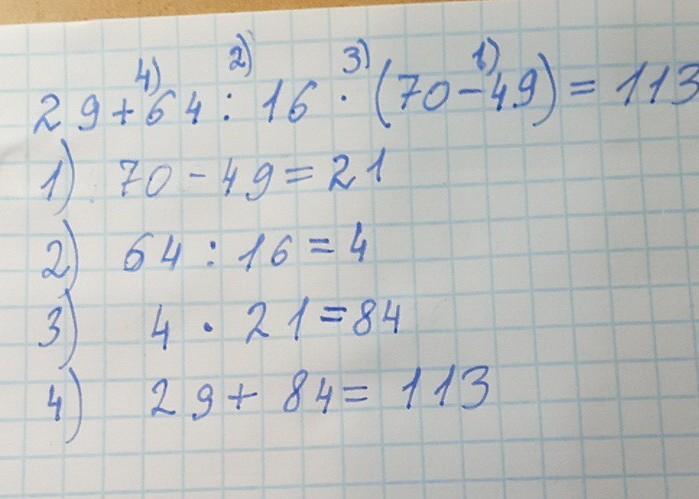 4) 2) 3) 1)
29+64:16·(70-49)=113
1) 70-49=21
2) 64:16=4
3) 4·21=84
4) 29+84=113